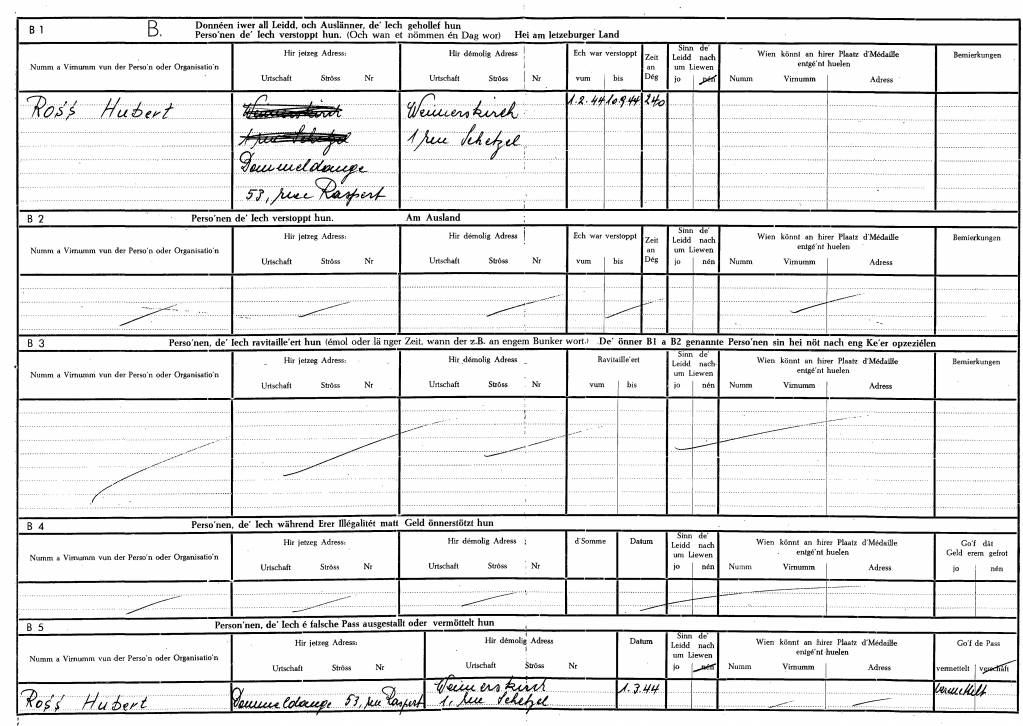 B 1 B. Donnéen iwer all Leidd, och Auslänner, de' Iech gehollef hun
Perso'nen de' Iech verstoppt hun. (Och wan et nömmen én Dag wor) Hei am letzeburger Land
Numm a Virnumm vun der Perso'n oder Organisatio'n
Hir jetzeg Adress:
Urtschaft Ströss Nr
Hir démolig Adress
Urtschaft Ströss Nr
Ech war verstoppt
vum bis
Zeit
an
Dég
Sinn de'
Leidd nach
um Liewen
jo nén
Wien könnt an hirer Plaatz d'Médaille
entgé'nt huelen
Numm Virnumm Adress
Bemierkungen
Ross Hubert
Weimerskirch
1 rue Schetzel
Dommeldange
53, rue Raspert
Weimerskirch
1 rue Schetzel
1.2.44 10.9.44 240
B 2 Perso'nen de' Iech verstoppt hun. Am Ausland
Numm a Virnumm vun der Perso'n oder Organisatio'n
Hir jetzeg Adress:
Urtschaft Ströss Nr
Hir démolig Adress
Urtschaft Ströss Nr
Ech war verstoppt
vum bis
Zeit
an
Dég
Sinn de'
Leidd nach
um Liewen
jo nén
Wien könnt an hirer Plaatz d'Médaille
entgé'nt huelen
Numm Virnumm Adress
Bemierkungen
B 3 Perso'nen, de' Iech ravitaille'ert hun (émol oder länger Zeit, wann der z.B. an engem Bunker wort.) De' önner B1 a B2 genannte Perso'nen sin hei nöt nach eng Ke'er opzeziélen
Numm a Virnumm vun der Perso'n oder Organisatio'n
Hir jetzeg Adress:
Urtschaft Ströss Nr
Hir démolig Adress
Urtschaft Ströss Nr
Ravitaille'ert
vum bis
Sinn de'
Leidd nach
um Liewen
jo nén
Wien könnt an hirer Plaatz d'Médaille
entgé'nt huelen
Numm Virnumm Adress
Bemierkungen
B 4 Perso'nen, de' Iech während Erer Illégalitét matt Geld önnerstötzt hun
Numm a Virnumm vun der Perso'n oder Organisatio'n
Hir jetzeg Adress:
Urtschaft Ströss Nr
Hir démolig Adress
Urtschaft Ströss Nr
d'Somme Datum
Sinn de'
Leidd nach
um Liewen
jo nén
Wien könnt an hirer Plaatz d'Médaille
entgé'nt huelen
Numm Virnumm Adress
Go'f dât
Geld erem gefrot
jo nén
B 5 Person'nen, de' Iech é falsche Pass ausgestallt oder vermöttelt hun
Numm a Virnumm vun der Perso'n oder Organisatio'n
Hir jetzeg Adress:
Urtschaft Ströss Nr
Hir démolig Adress
Urtschaft Ströss Nr
Datum
Sinn de'
Leidd nach
um Liewen
jo nén
Wien könnt an hirer Plaatz d'Médaille
entgé'nt huelen
Numm Virnumm Adress
Go'f de Pass
vermettelt verschäft
Ross Hubert
Dommeldange 53, rue Raspert
Weimerskirch
1, rue Schetzel
1.3.44
vermettelt